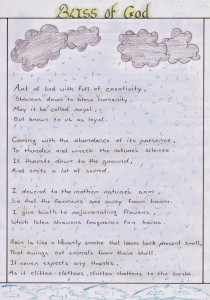 Bliss of God
Art of God with full of creativity,
Showers down to bless humanity.
May it be called royal,
But known to us as loyal.
Coming with the abundance of its presence,
To thunder and wreck the nature's silence
It thuds down to the ground,
And emits a lot of sound.
I descend to the mother nature's arm,
So that the farmers are away from harm.
I give birth to rejuvenating flowers,
Which later showers fragrance for hours.
Rain is like a heavenly smoke that leaves back present small,
That brings out animals from their shell.
It never expects any thanks,
As it clitter-clatters, chitter-chatters to the banks.